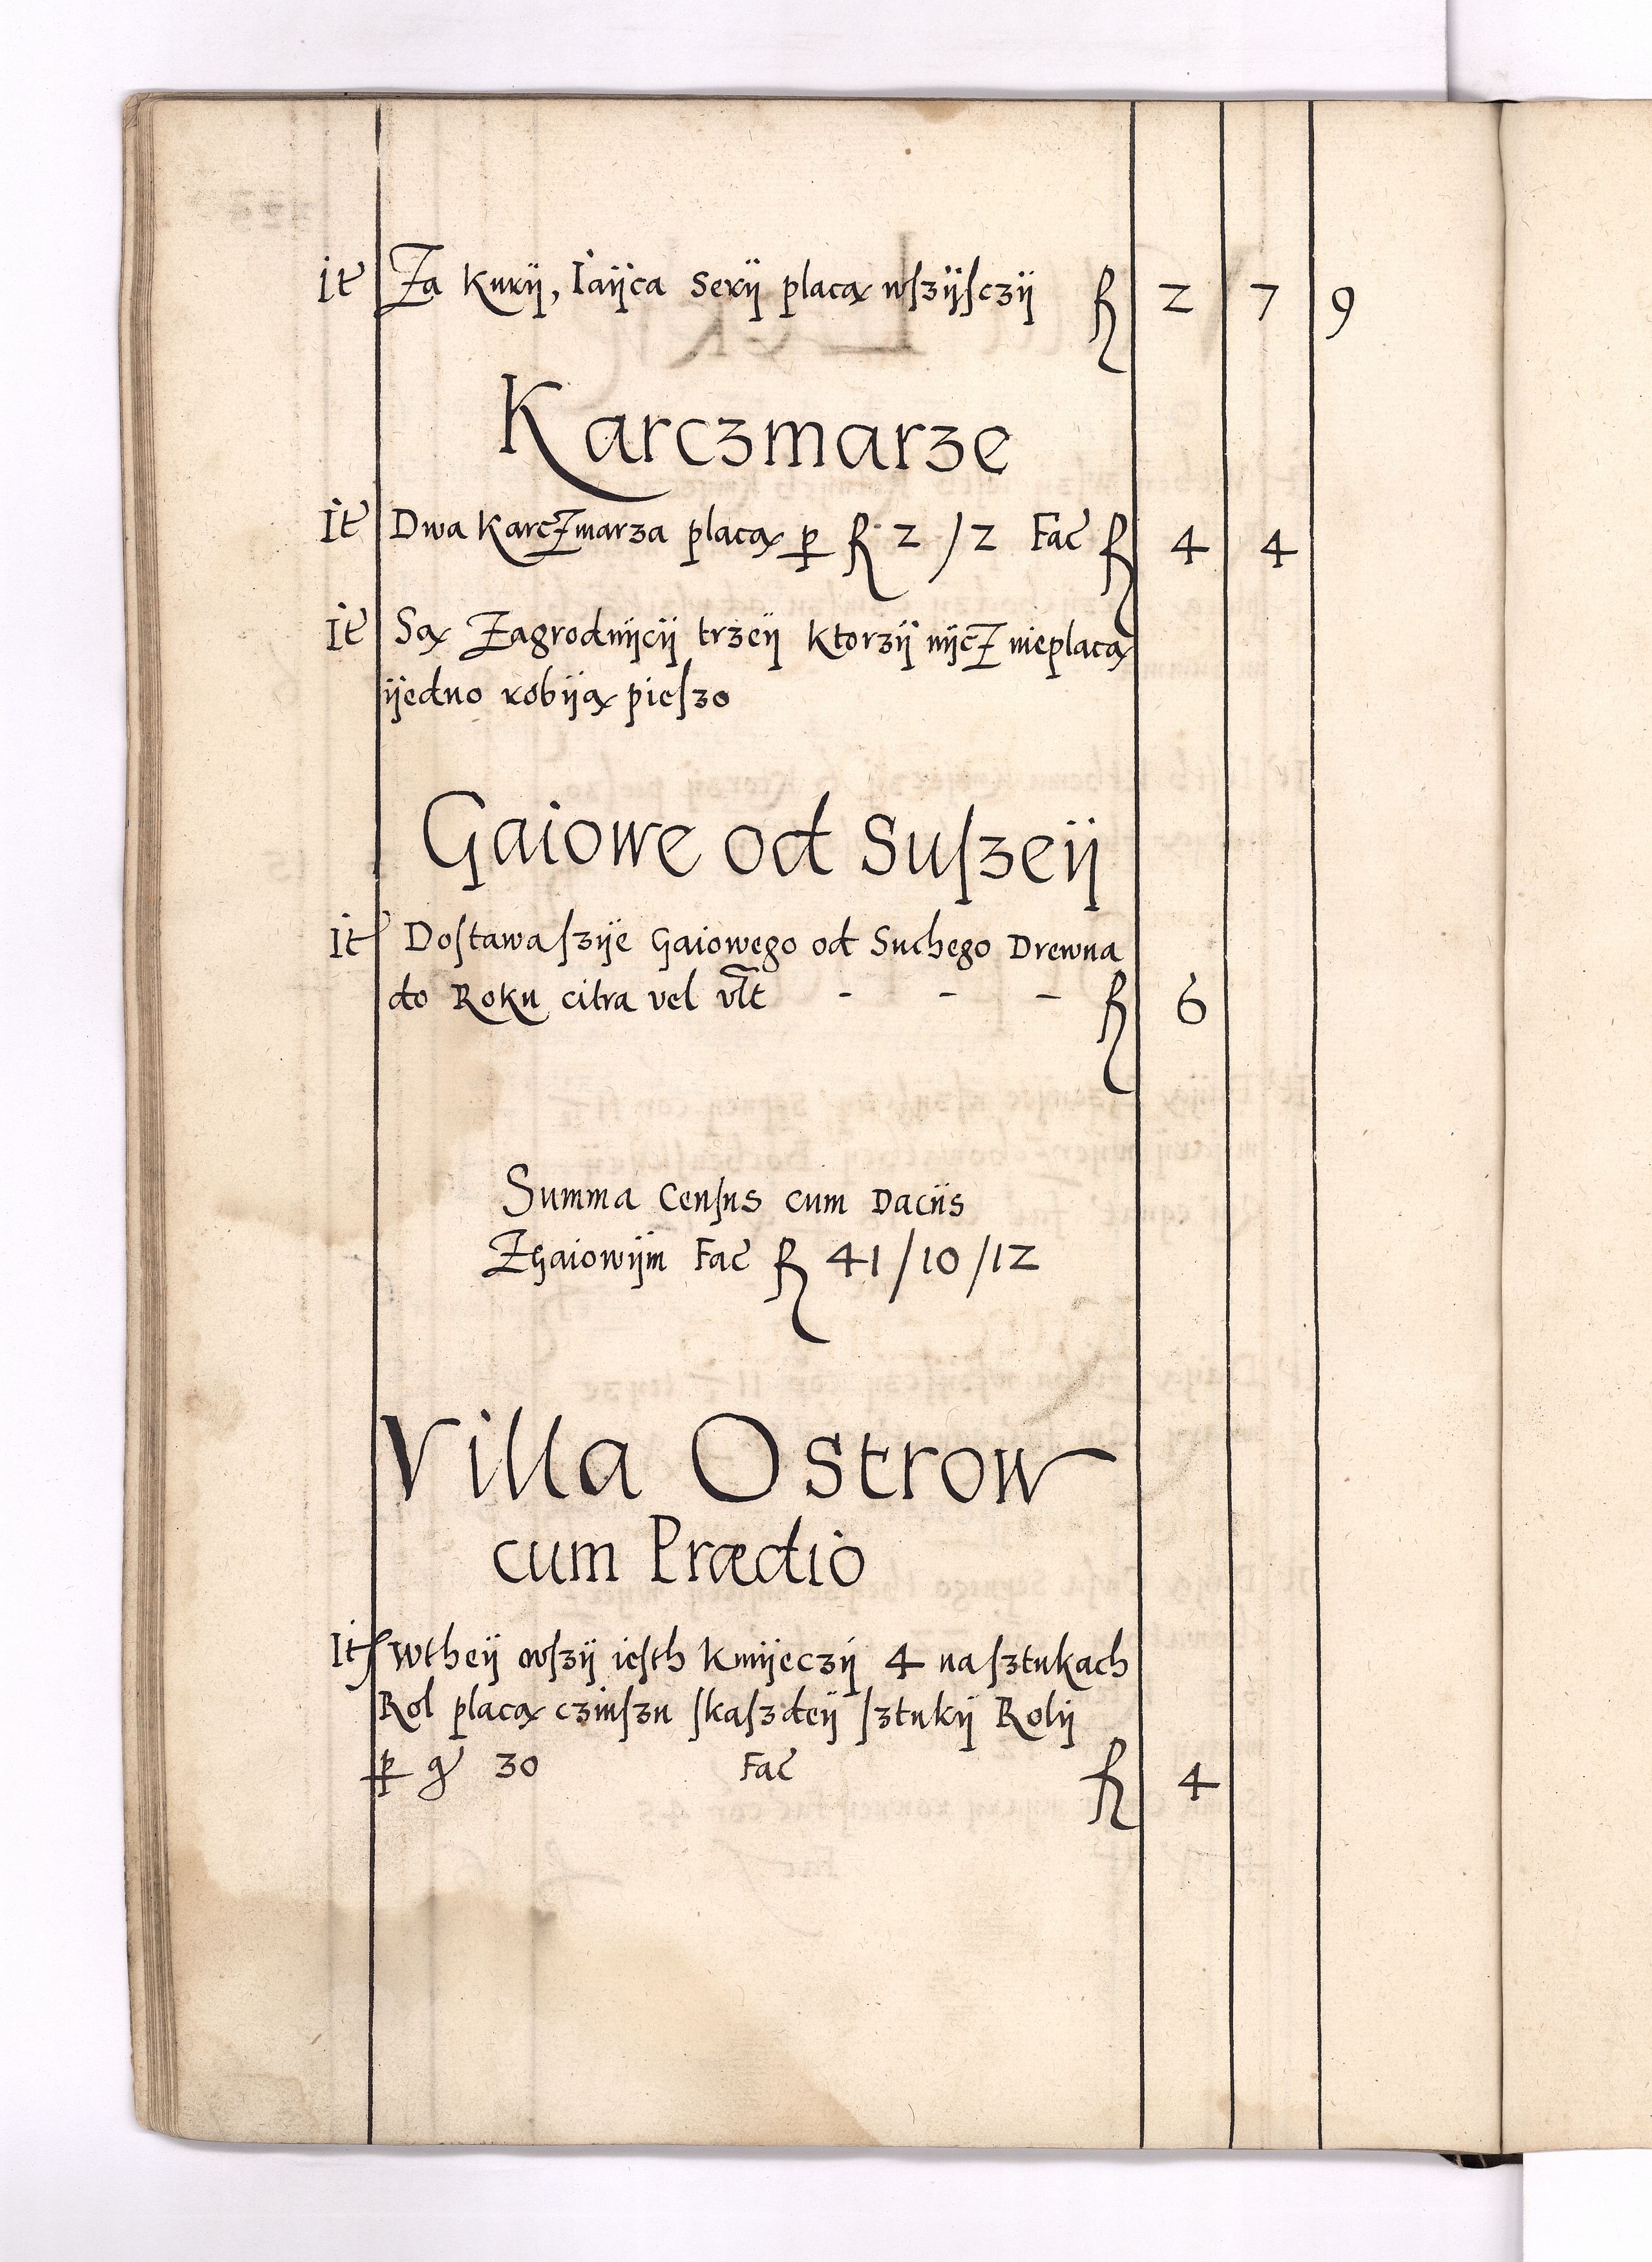 It Za Kurij, Iaijca Serij placą wſzijſczij fl 2 7 9
Karczmarze
It Dwa Karczmarza placą p fl 2 / 2 Fac fl 4 4
It Są Zagrodnijcij trzeij Ktorzij nijcz nieplacą
ijedno robiją pieſzo
Gaiowe od Suſzeij
It Doſtawa ſzije Gaiowego od Suchego Drewna
do Roku citra vel vlt - - - fl 6
Summa Cenſus cum Daciis
Zgaiowijm Fac fl 41/10/12
Villa Ostrow
cum Prædio
It Wtheij wſzij ieſth Kmijeczij 4 na ſztukach
Rol placą czinſzu ſkaſzdeij ſztukij Rolij
p g 30 Fac fl 4